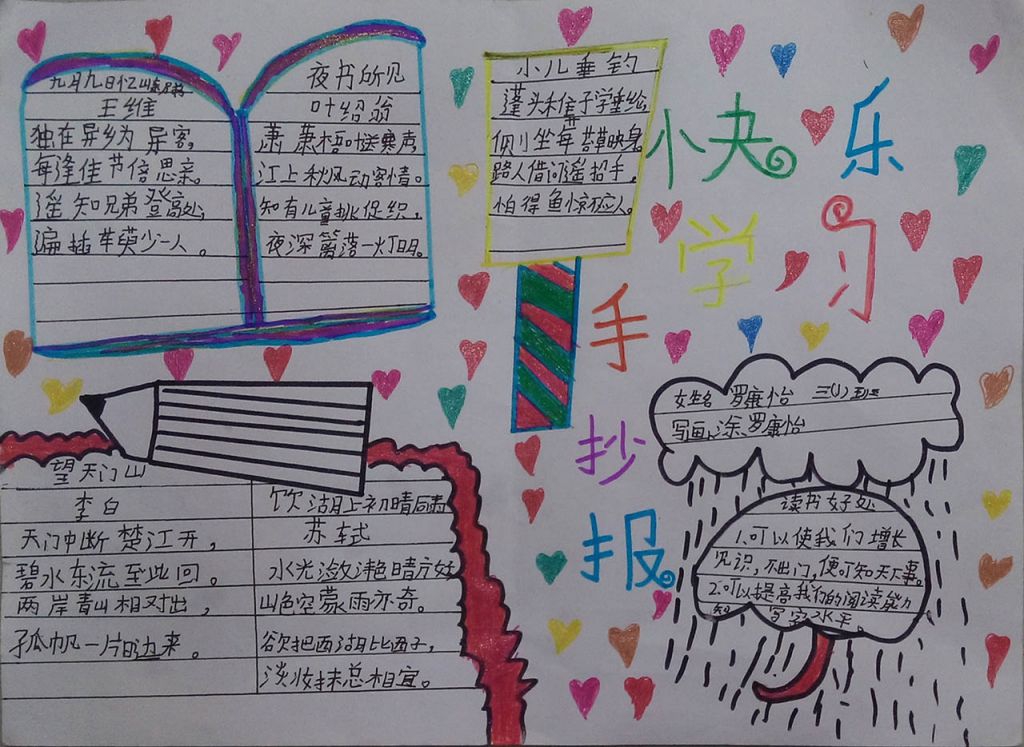 九月九日忆山东兄弟
王维
独在异乡为异客,
每逢佳节倍思亲。
遥知兄弟登高处,
遍插茱萸少一人。
夜书所见
叶绍翁
萧萧梧叶送寒声,
江上秋风动客情。
知有儿童挑促织,
夜深篱落一灯明。
小儿垂钓
蓬头稚子学垂纶,
侧坐莓苔草映身。
路人借问遥招手,
怕得鱼惊不应人。
小快乐
学习
手
抄
报
女姓名 罗康怡 三(1)班
写画、涂、罗康怡
望天门山
李白
天门中断楚江开,
碧水东流至此回。
两岸青山相对出,
孤帆一片日边来。
饮湖上初晴后雨
苏轼
水光潋滟晴方好
山色空蒙雨亦奇。
欲把西湖比西子,
淡妆抹总相宜。
读书好处
1.可以使我们增长
见识,不出门,便可知天下事。
2.可以提高我们的阅读能力
和写字水平。